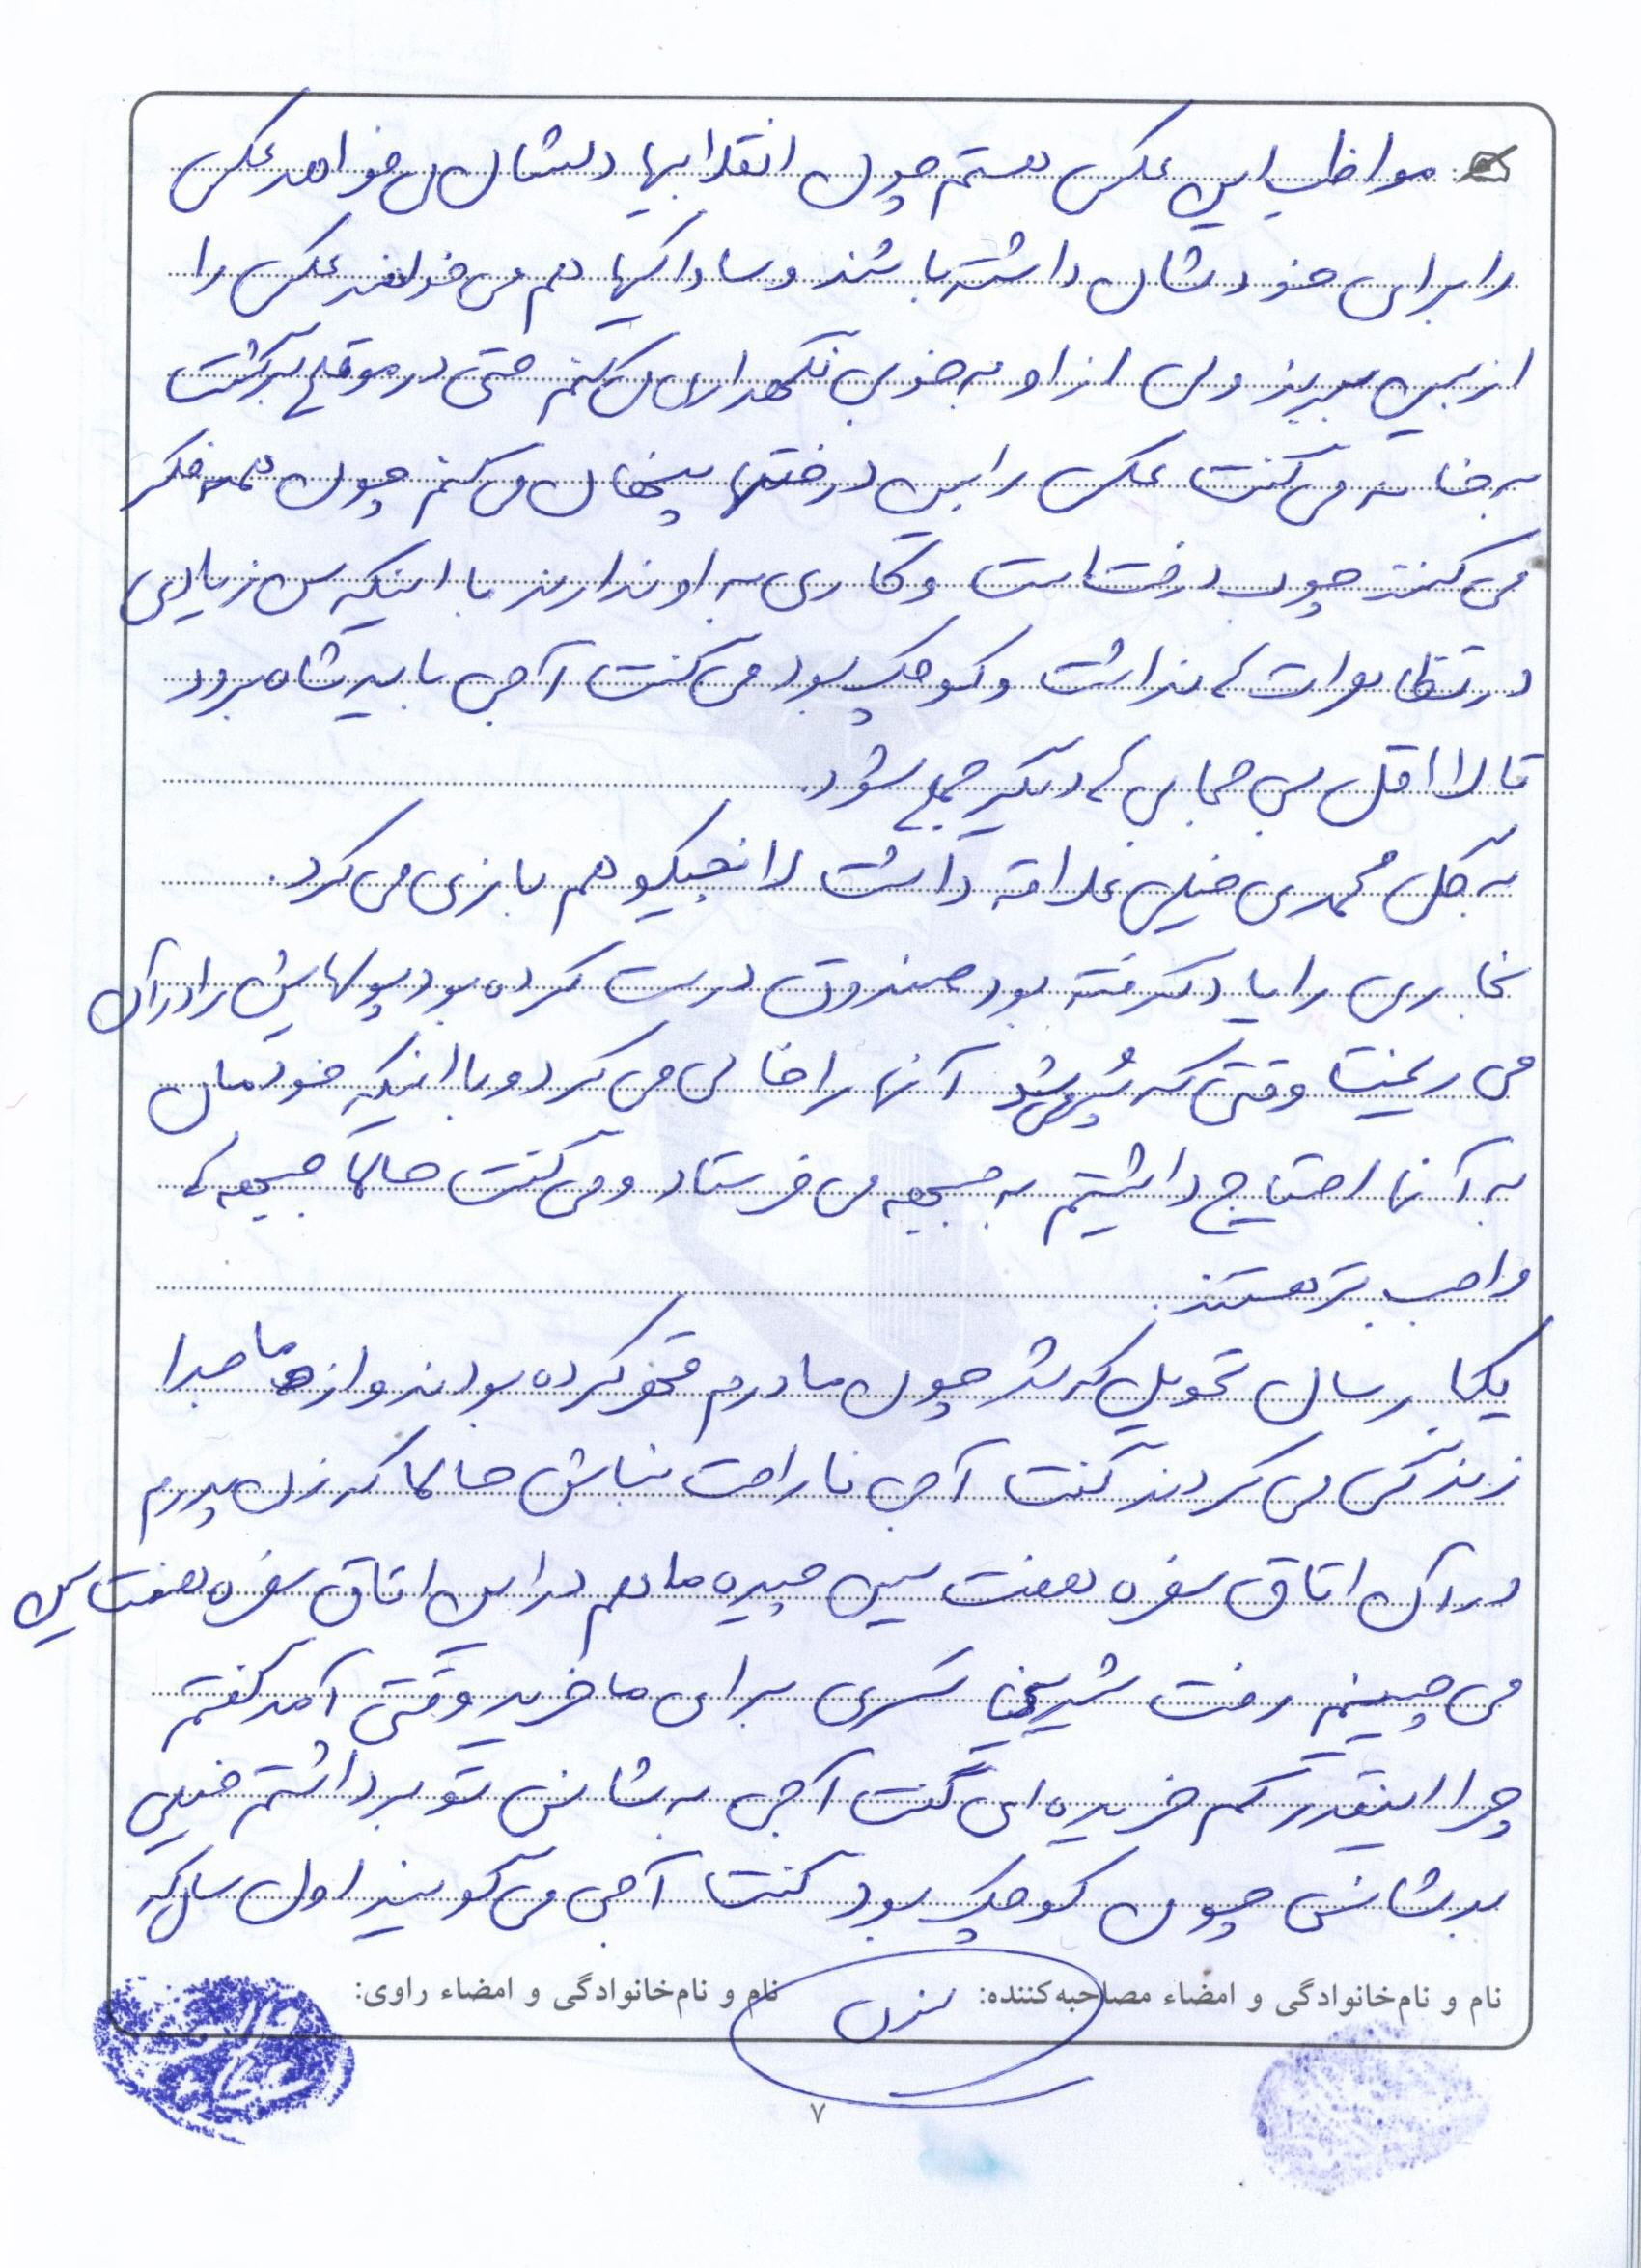 مواظب این عکس هستم چون انقلابیها دلشان می خواهد عکس
را برای خودشان داشته باشند و ساواکیها هم می خواهند عکس را
از بین ببرند ولی از او به خوبی نگهداری می کنم حتی در موقع برگشت
به خانه می گفت عکس را بین درختها پنهان می کنم چون همه فکر
می کنند چوب درخت است و کاری به او ندارند با اینکه سن زیادی
در تظاهرات ها نداشت و کوچک بود می گفت آجی باید شاه برود
تا لااقل بی حجابی ها دیگر جمع شود.
به گل محمدی خیلی علاقه داشت لانچیکو هم بازی می کرد.
نجاری را یاد گرفته بود صندوق درست کرده بود پولهایش را در آن
می ریخت وقتی که پُر می شد آنها را خالی می کرد و با اینکه خودمان
به آنها احتیاج داشتیم به جبهه می فرستاد و می گفت حالا جبهه ها
واجب تر هستند.
یکبار سال تحویل که شد چون مادرم قهر کرده بودند و از ما جدا
زندگی می کردند گفت آجی ناراحت نباش حالا که زن پدرم
در آن اتاق سفره هفت سین چیده ما هم در این اتاق سفره هفت سین
می چینیم رفت شیرینی تری برای ما خرید وقتی آمد گفتم
چرا اینقدر کم خریده ای گفت آجی به شانس تو برداشتم خیلی
بد شانسی چون کوچک بود گفت آجی می گویند اول سال که
نام و نام‌خانوادگی و امضاء مصاحبه‌کننده: نام و نام‌خانوادگی و امضاء راوی:
۷